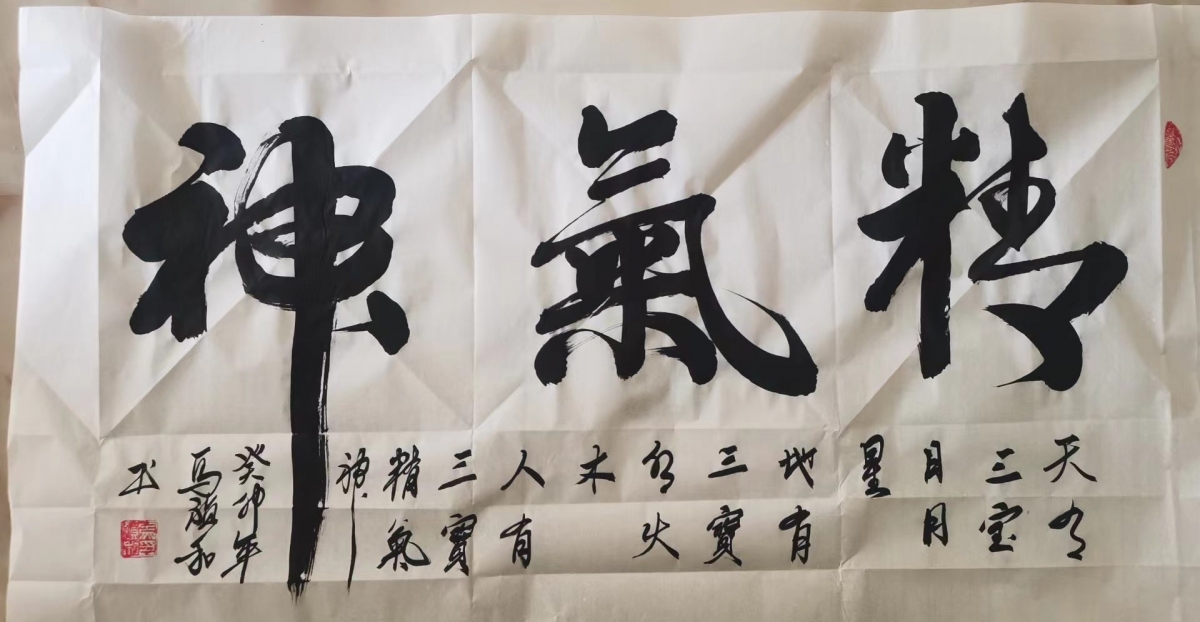 精氣神
天有
三宝
日月
星
地有
三寶
水火
木
人有
三寶
精氣
神
癸卯年
馬和
书